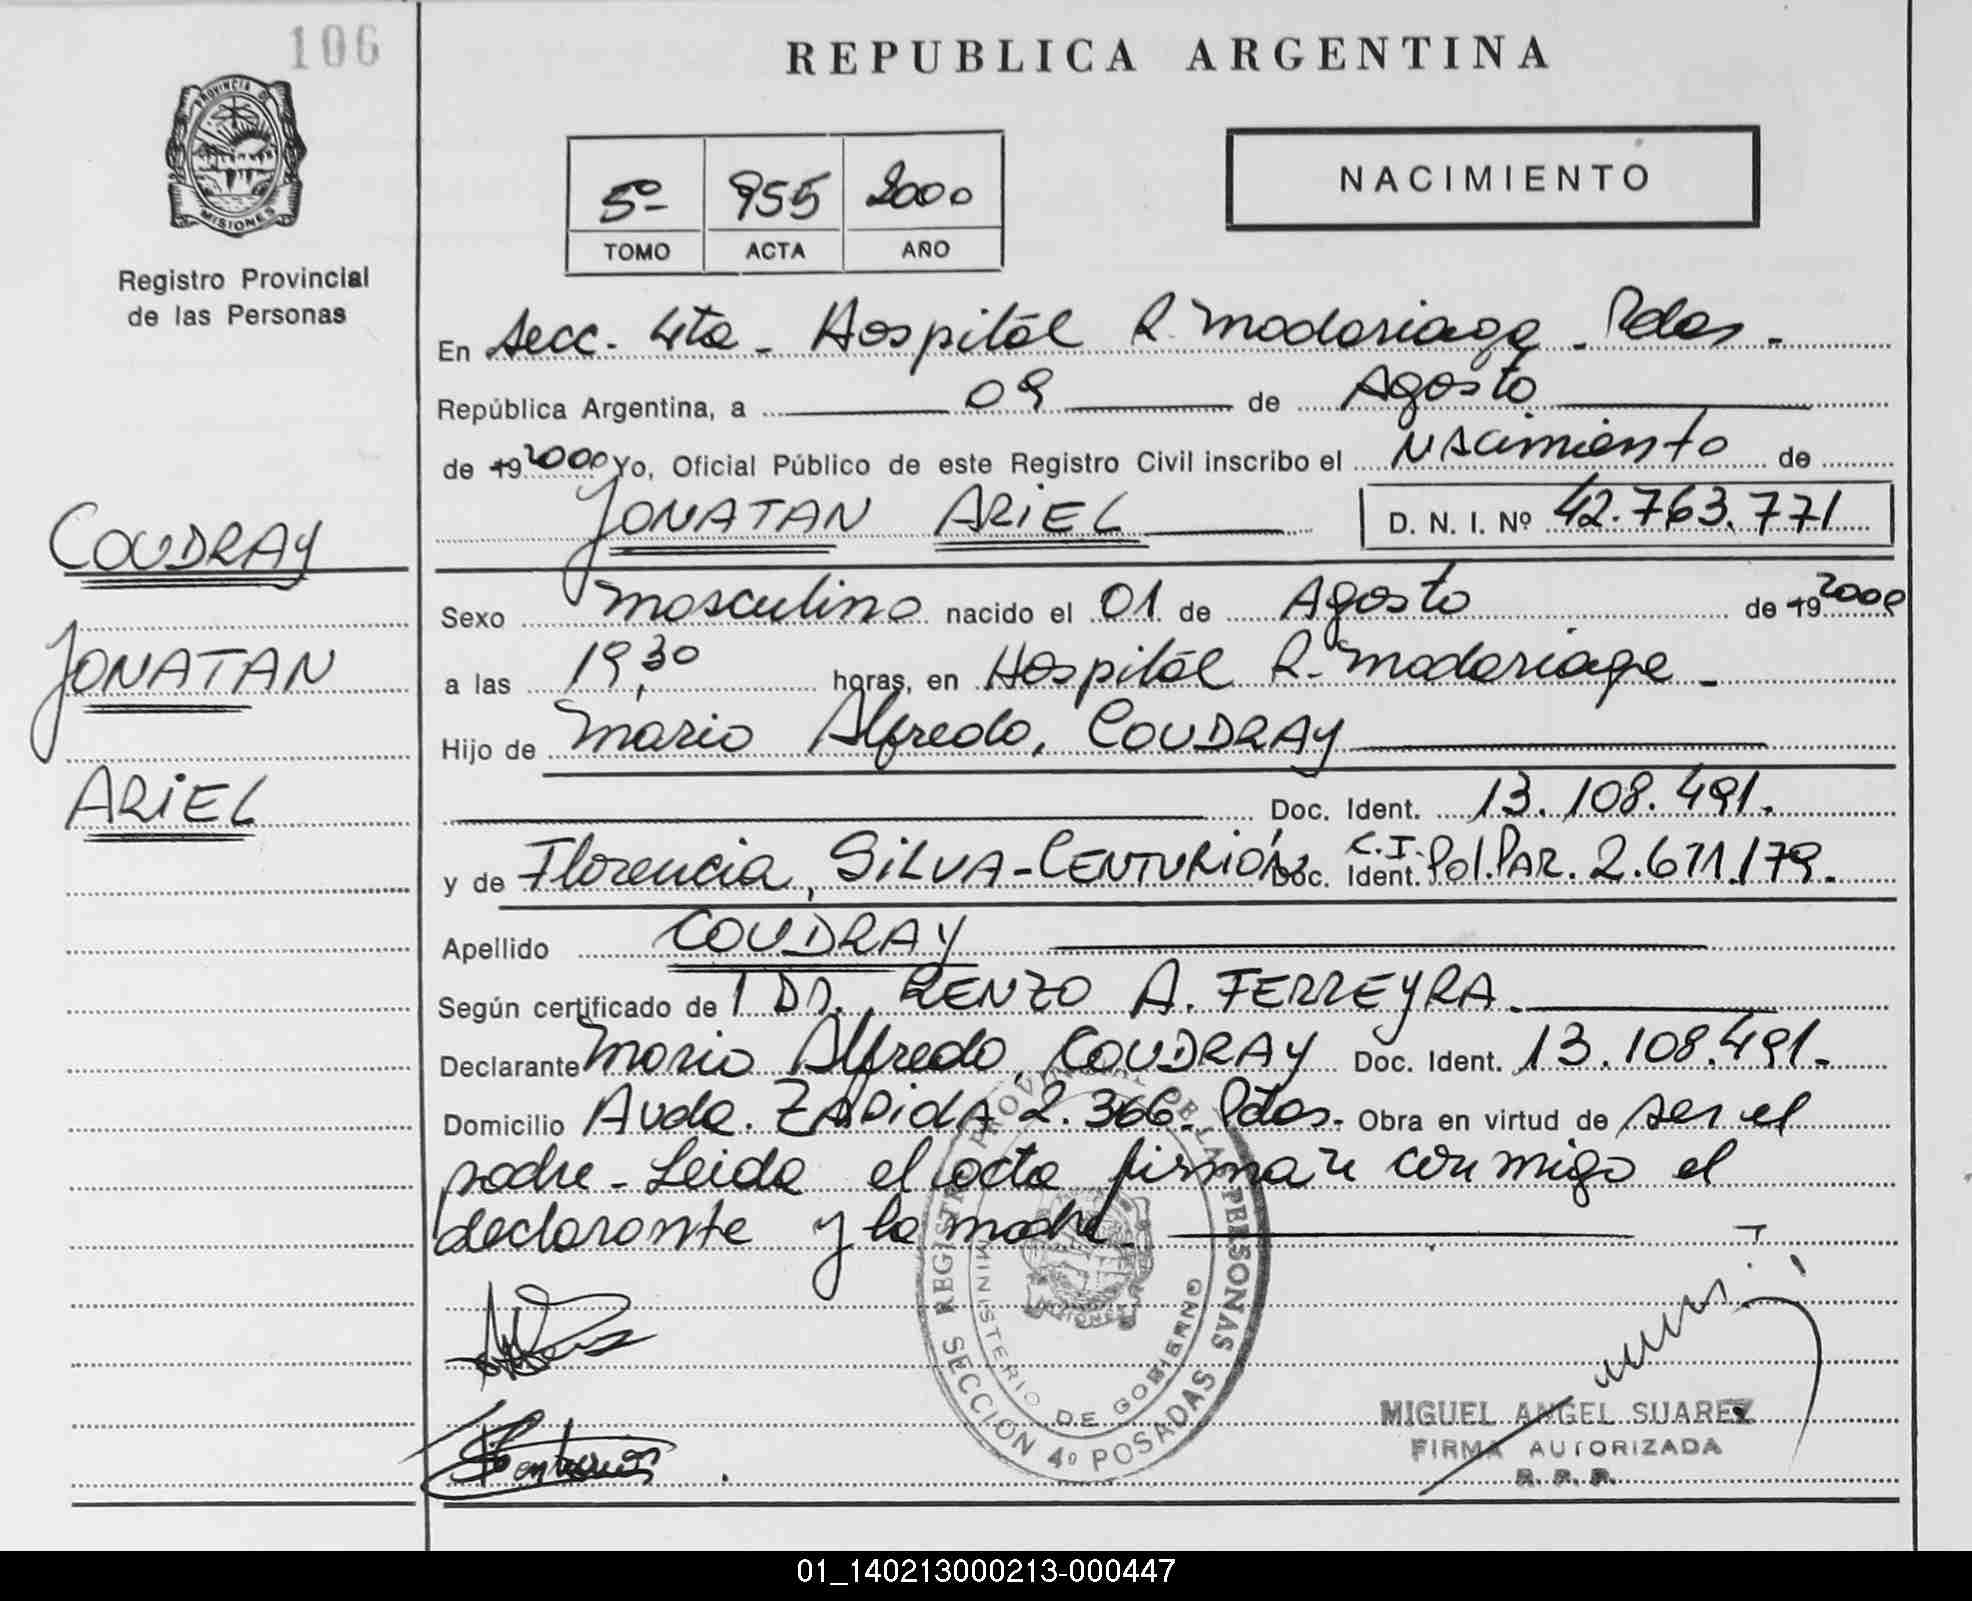 106
REPUBLICA ARGENTINA
PROVINCIA DE
MISIONES
Registro Provincial
de las Personas
NACIMIENTO
5º 955 2000
TOMO ACTA AÑO
En Secc. 4ta - Hospital R. Madariaga - Pdas. -
República Argentina, a 09 de Agosto
de 19 2000 Yo, Oficial Público de este Registro Civil inscribo el Nacimiento de
JONATAN ARIEL D. N. I. Nº 42.763.771
COUDRAY
JONATAN
ARIEL
Sexo masculino nacido el 01 de Agosto de 19 2000
a las 19,30 horas, en Hospital R. Madariaga -
Hijo de Mario Alfredo, COUDRAY
Doc. Ident. 13.108.491.
y de Florencia, SILVA-CENTURIÓN Doc. Ident. C.I. Pol. PAR. 2.671.179.
Apellido COUDRAY
Según certificado de Dr. RENZO A. FERREYRA.
Declarante Mario Alfredo, COUDRAY Doc. Ident. 13.108.491.-
Domicilio Avda. ZAPIOLA 2.366 - Pdas. - Obra en virtud de ser el
padre - Leida el acta firman conmigo el
declarante y la madre.
REGISTRO PROVINCIAL DE LAS PERSONAS
MINISTERIO DE GOBIERNO
SECCIÓN 4º POSADAS
MIGUEL ANGEL SUAREZ
FIRMA AUTORIZADA
R. P. P.
01_140213000213-000447